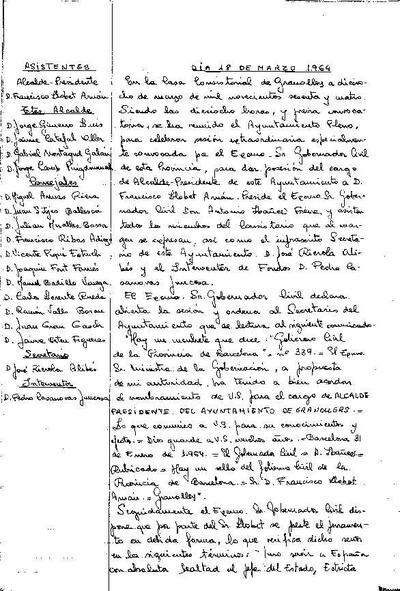 ASISTENTES
Alcalde-Presidente
D. Francisco Llobet Arnán
Ttes. Alcalde
D. Jorge Gimeno
D. Jaime
D. Gabriel Montagud
D. Jorge Camp Puigdomenech
Concejales
D. Miguel Arenas Riera
D. Juan Sitjes
D. Julian
D. Francisco Ribas
D. Vicente
D. Joaquin Font Fornés
D. Manuel Badillo
D. Carlos
D. Ramón Valls
D. Juan Grau
D. Jaime Figueras
Secretario
D. José Rierola Alibés
Interventor
D. Pedro Casanovas Juncosa
DÍA 18 DE MARZO 1964
En la Casa Consistorial de Granollers a diecio-
cho de marzo de mil novecientos sesenta y cuatro.
Siendo las dieciocho horas, y previa convoca-
toria, se ha reunido el Ayuntamiento Pleno,
para celebrar sesión extraordinaria especialmen-
te convocada por el Excmo. Sr. Gobernador Civil
de esta Provincia, para dar posesión del cargo
de Alcalde-Presidente de este Ayuntamiento a D.
Francisco Llobet Arnán. Preside el Excmo. Sr. Gober-
nador Civil Don Antonio Ibáñez Freire, y asisten
todos los miembros del Consistorio que al mar-
gen se expresan, así como el infrascrito Secreta-
rio de este Ayuntamiento D. José Rierola Ali-
bés y el Interventor de Fondos D. Pedro Ca-
sanovas Juncosa.
El Excmo. Sr. Gobernador Civil declara
abierta la sesión y ordena al Secretario del
Ayuntamiento que de lectura al siguiente comunicado:
"Hay un membrete que dice: "Gobierno Civil
de la Provincia de Barcelona". - nº 339. - El Excmo.
Sr. Ministro de la Gobernación, a propuesta
de mi autoridad, ha tenido a bien acordar
el nombramiento de V.S. para el cargo de ALCALDE
PRESIDENTE DEL AYUNTAMIENTO DE GRANOLLERS. -
Lo que comunico a V.S. para su conocimiento y
efectos. - Dios guarde a V.S. muchos años. - Barcelona 31
de Enero de 1.964. - El Gobernador Civil = A. Ibáñez =
Rubricado = Hay un sello del Gobierno Civil de la
Provincia de Barcelona. = Sr. D. Francisco Llobet
Arnán. = Granollers".
Seguidamente el Excmo. Sr. Gobernador Civil dis-
pone que por parte del Sr. Llobet se preste el juramen-
to en debida forma, lo que verifica dicho señor
en los siguientes términos: "Juro servir a España
con absoluta lealtad al Jefe del Estado, Estricta